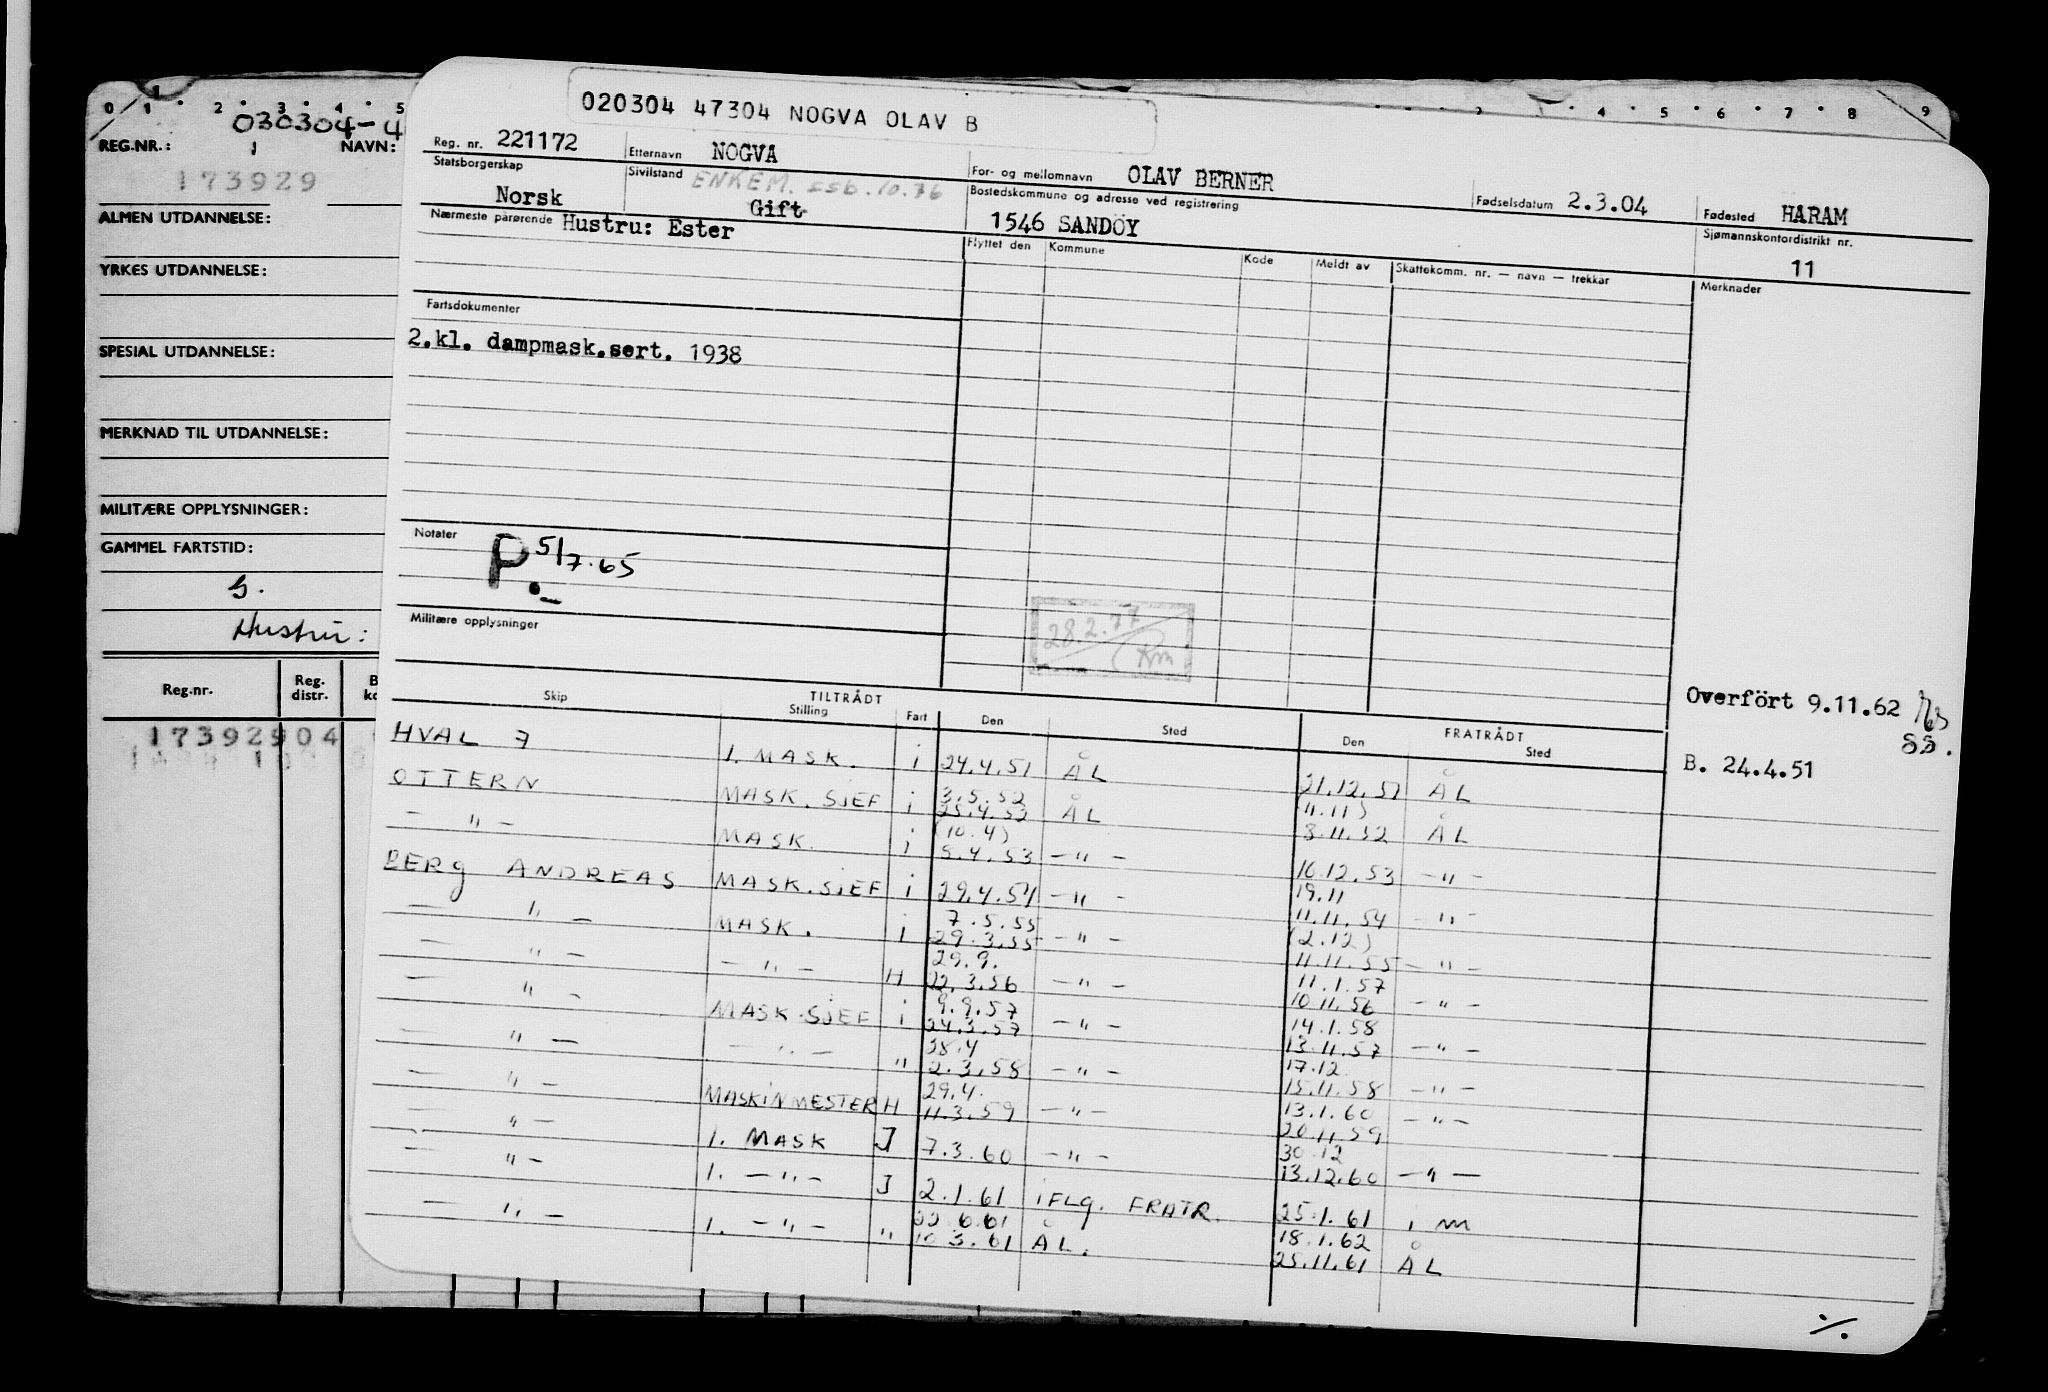 0 1 2 3 4 5
030304-4
REG.NR.: 1 NAVN:
173929
ALMEN UTDANNELSE:
YRKES UTDANNELSE:
SPESIAL UTDANNELSE:
MERKNAD TIL UTDANNELSE:
MILITÆRE OPPLYSNINGER:
GAMMEL FARTSTID:
Hustru:
Reg.nr. Reg. distr.
17392904
4 5 6 7 8 9
020304 47304 NOGVA OLAV B
Reg. nr. 221172 Etternavn NOGVA For- og mellomnavn OLAV BERNER Fødselsdatum 2.3.04 Fødested HARAM
Statsborgerskap Norsk Sivilstand ENKEM. ssb.10.76 Gift Bostedskommune og adresse ved registrering 1546 SANDÖY Sjømannskontordistrikt nr. 11
Nærmeste pårørende Hustru: Ester
Flyttet den Kommune Kode Meldt av Skattekomm. nr. — navn — trekkar Merknader
Fartsdokumenter
2.kl. dampmask.sert. 1938
Notater
P. 5/7.65
28.2.77
Militære opplysninger
Overfört 9.11.62
SS.
B. 24.4.51
TILTRÅDT FRATRÅDT
Skip Stilling Fart Den Sted Den Sted
HVAL 7 1. MASK. i 24.4.51 ÅL 21.12.51 ÅL
3.5.52 (4.11)
OTTERN MASK. SJEF i 25.4.52 ÅL 8.11.52 ÅL
(10.4)
— " — MASK. i 5.4.53 — " — 16.12.53 — " —
19.11
BERG ANDREAS MASK.SJEF i 29.4.54 — " — 11.11.54 — " —
7.5.55 (2.12)
— " — MASK. i 29.3.55 — " — 11.11.55 — " —
29.9. 11.1.57
— " — — " — H 22.3.56 — " — 10.11.56 — " —
9.9.57 14.1.58
— " — MASK.SJEF i 24.3.57 — " — 13.11.57 — " —
28.4 17.12
— " — — " — " 2.3.58 — " — 15.11.58 — " —
29.4. 13.1.60
— " — MASKINMESTER H 11.3.59 — " — 20.11.59 — " —
30.12
— " — 1. MASK J 7.3.60 — " — 13.12.60 — " —
— " — 1. — " — J 2.1.61 iFLG. FRATR. 25.1.61 , m
22.6.61 18.1.62
— " — 1. — " — " 10.3.61 ÅL. 25.11.61 ÅL
./.